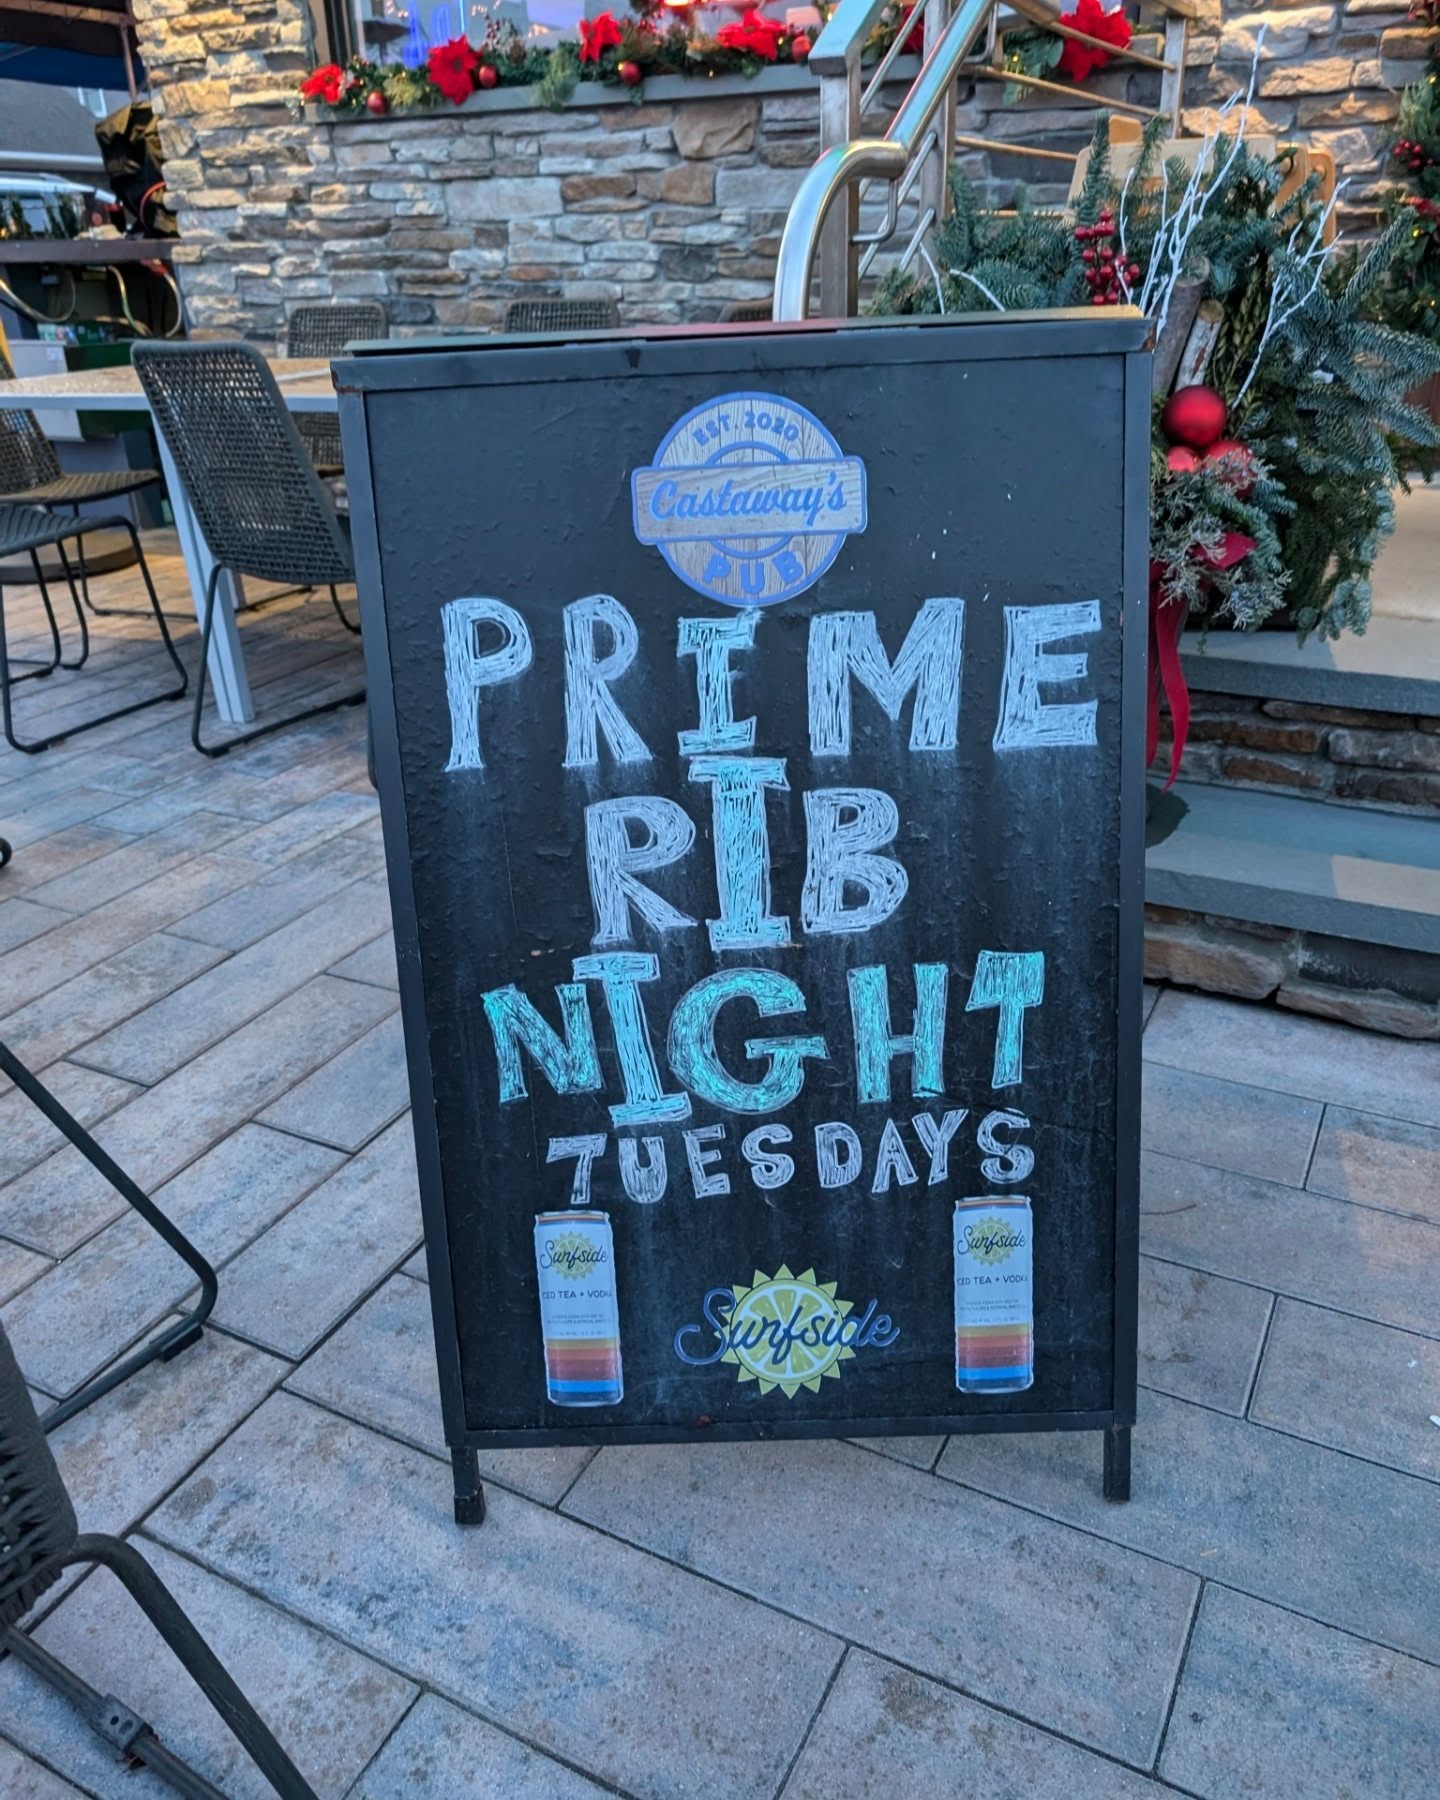 EST. 2020
Castaway's
PUB
PRIME
RIB
NIGHT
TUESDAYS
Surfside
ICED TEA + VODKA
Surfside
Surfside
ICED TEA + VODKA